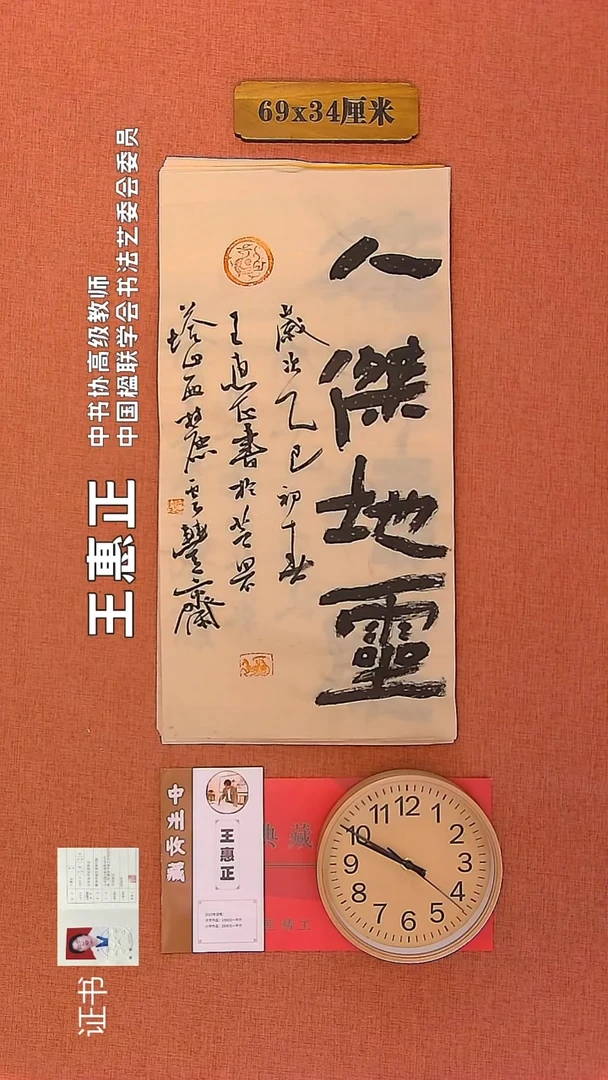 69x34厘米
人傑地靈
歲次乙巳初春
王惠正書於
塔山西麓雲鶴齋
中书协高级教师
中国楹联学会书法艺委会委员
王惠正
中
藏
王惠正
典藏
12
1
2
3
4
5
6
7
8
9
10
11
证书